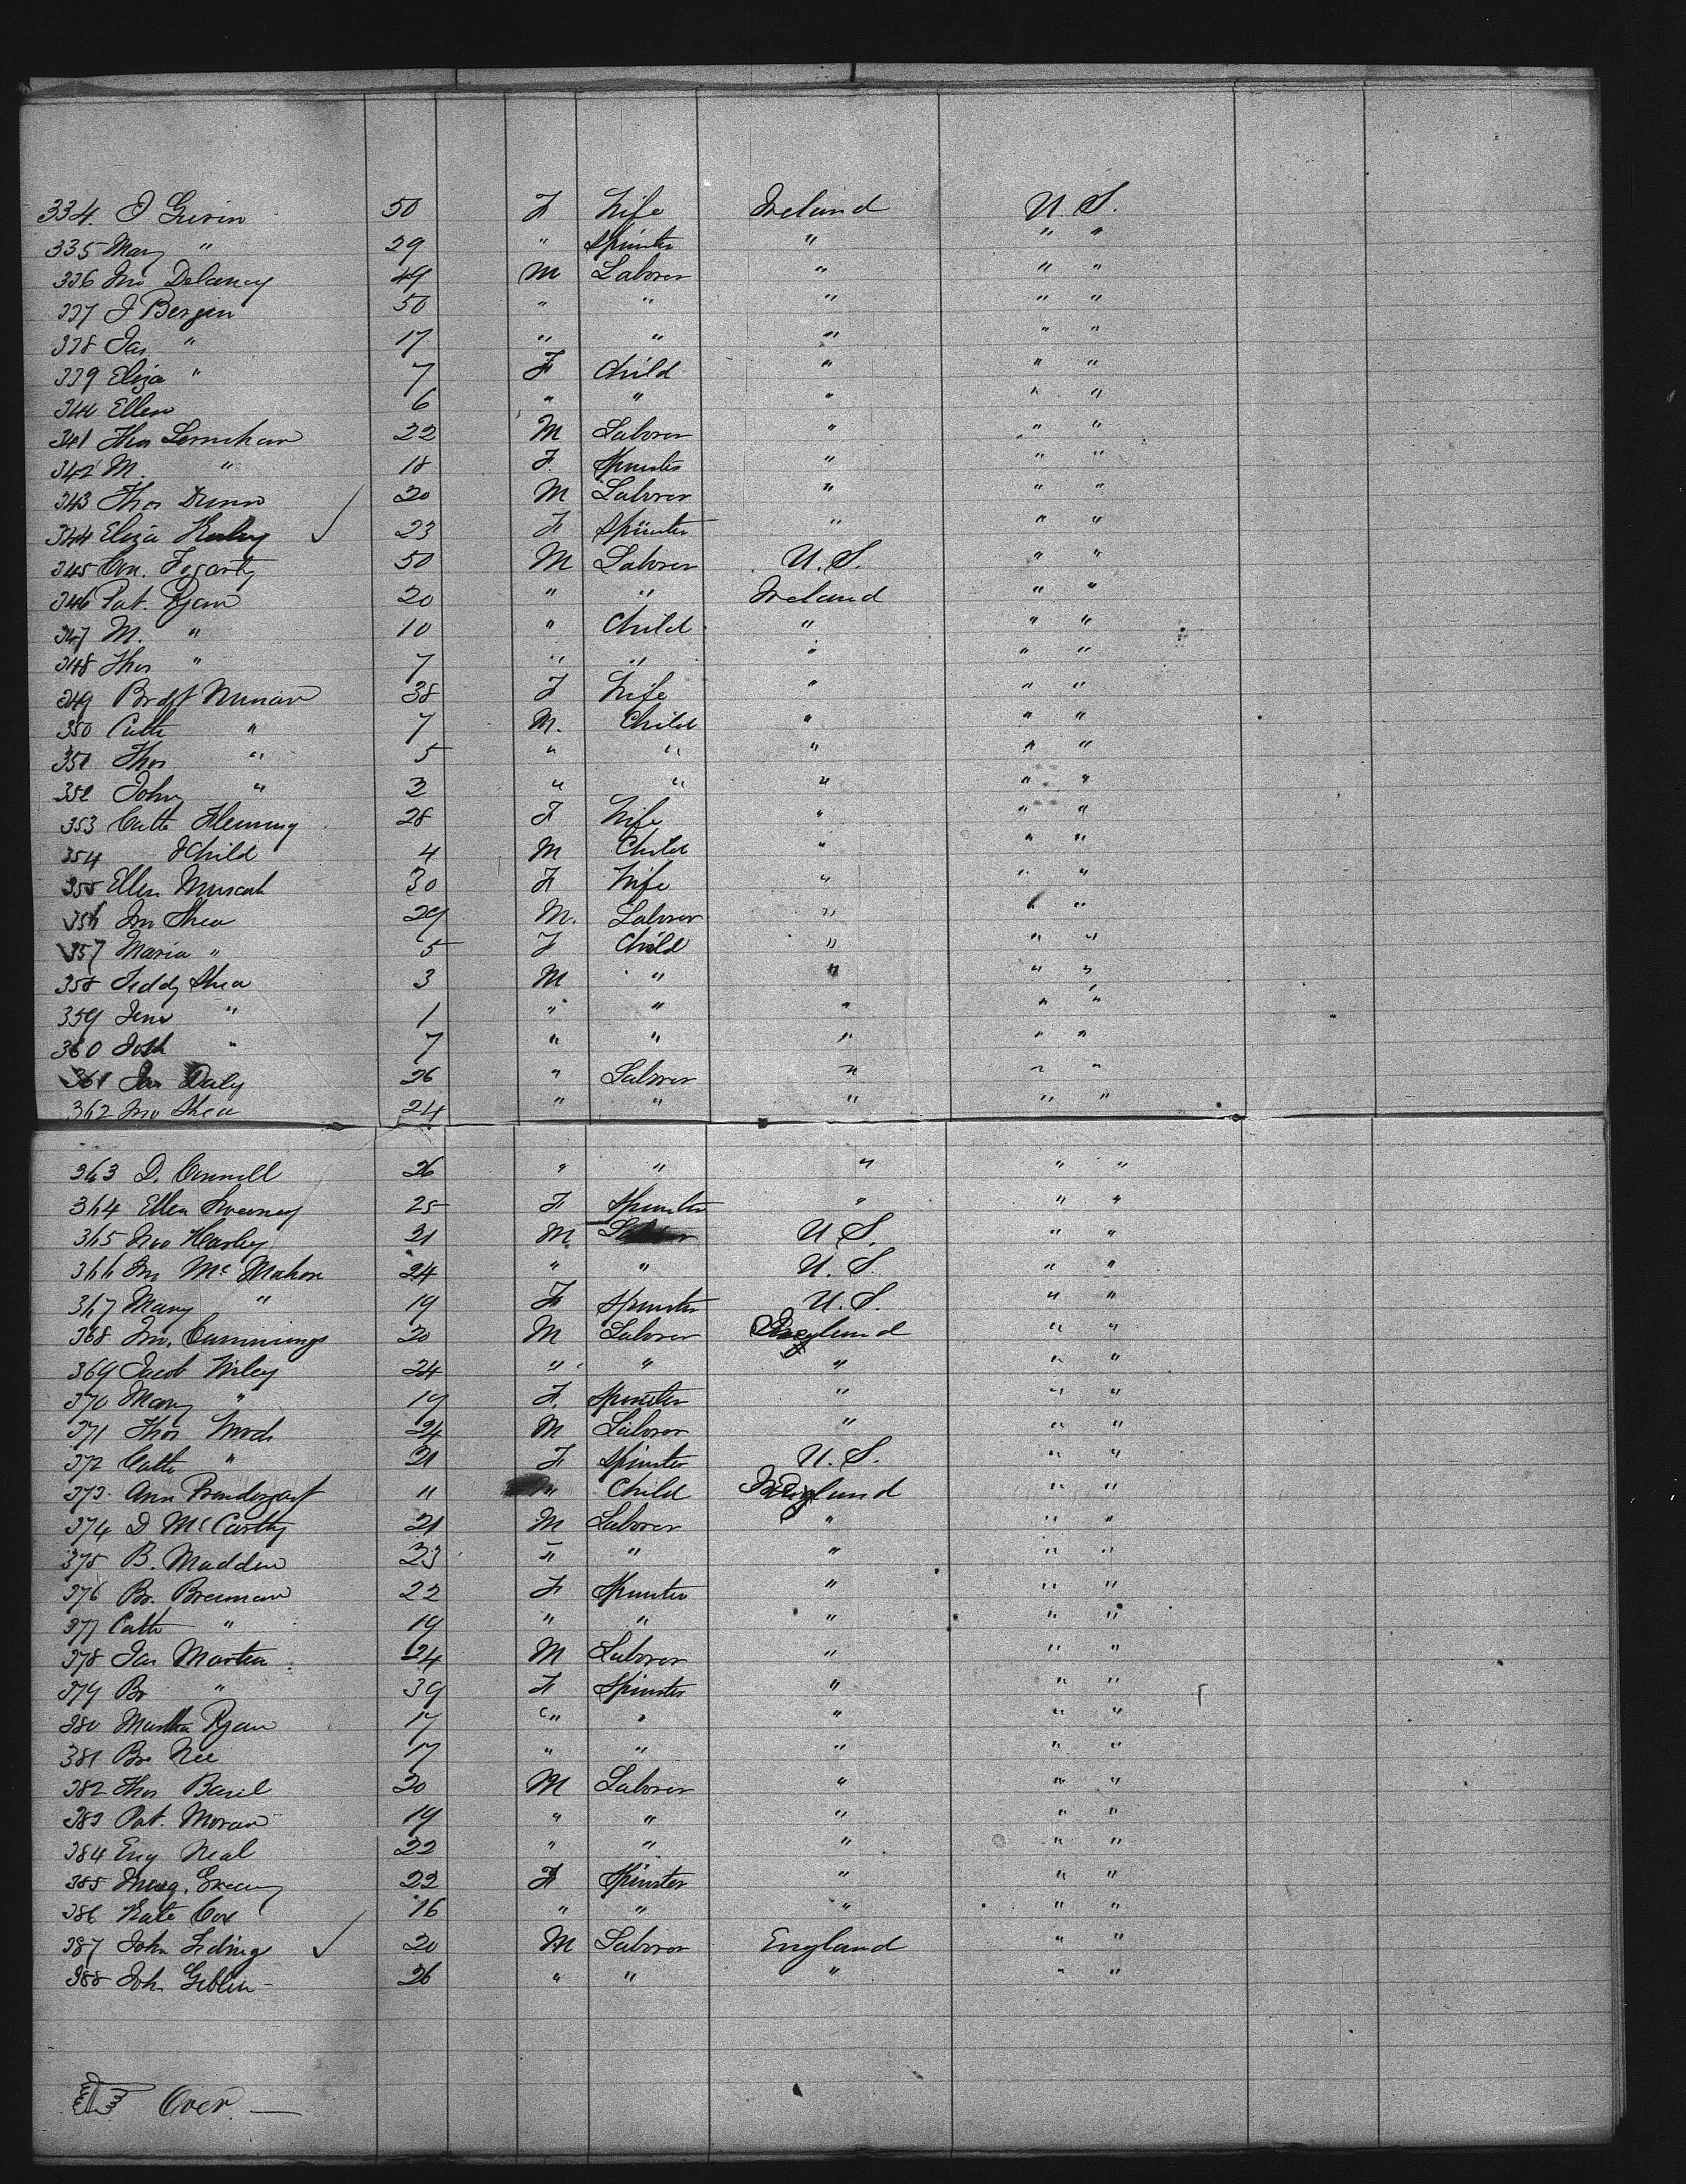 334. J Grivin 50 F Wife Ireland U.S.
335 Mary " 29 " Spinster " " "
336 Jno Delaney 49 M Laborer " " "
337 J Bergin 50 " " " " "
338 Jas " 17 " " " " "
339 Eliza " 7 F Child " " "
340 Ellen 6 " " " " "
341 Thos Lernihan 22 M Laborer " " "
342 M. " 18 F. Spinster " " "
343 Thos Dunn 20 M Laborer " " "
344 Eliza ✓ 23 F Spinster " " "
345 Con. Fogarty 50 M Laborer U.S. " "
346 Pat. Ryan 20 " " Ireland " "
347 M. " 10 " Child " " "
348 Thos " 7 " " " " "
349 Bradgt Nunan 38 F Wife " " "
350 Cath " 7 M. Child " " "
351 Thos " 5 " " " " "
352 John " 2 " " " " "
353 Cath Fleming 28 F Wife " " "
354 Child 4 M Child " " "
355 Ellen 30 F Wife " " "
356 Jno Shea 29 M. Laborer " " "
357 Maria " 5 F Child " " "
358 Teddy Shea 3 M " " " "
359 " 1 " " " " "
360 Josh " 7 " " " " "
361 Daly 26 " Laborer " " "
362 Jno Shea 24 " " " " "
363 D. Connell 26 " " " " "
364 Ellen Sweeney 25 F Spinster " " "
365 Jno Harley 21 M U S. " "
366 Jno McMahon 24 " " U.S. " "
367 Mary " 19 F Spinster U.S. " "
368 Jno. Cummings 20 M Laborer England " "
369 Jacob Wiley 24 " " " " "
370 Mary " 19 F. Spinster " " "
371 Thos Wood 24 M Laborer " " "
372 Cath " 21 F Spinster U.S. " "
373 Ann Prendergast 11 " Child England " "
374 D McCarthy 21 M Laborer " " "
375 B. Madden 23 " " " " "
376 Br. Brennan 22 F Spinster " " "
377 Cath " 19 " " " " "
378 Jas Martin 24 M Laborer " " "
379 Br " 39 F Spinster " " "
380 Martha Ryan 17 " " " " "
381 Br. Nee 17 " " " " "
382 Thos Basil 20 M Laborer " " "
383 Pat. Moran 19 " " " " "
384 Eug Neal 22 " " " " "
385 Marg. 22 F Spinster " " "
386 Kate Cox 16 " " " " "
387 John ✓ 20 M Laborer England " "
388 Joh. Giblin 26 " " " " "
☞ Over —